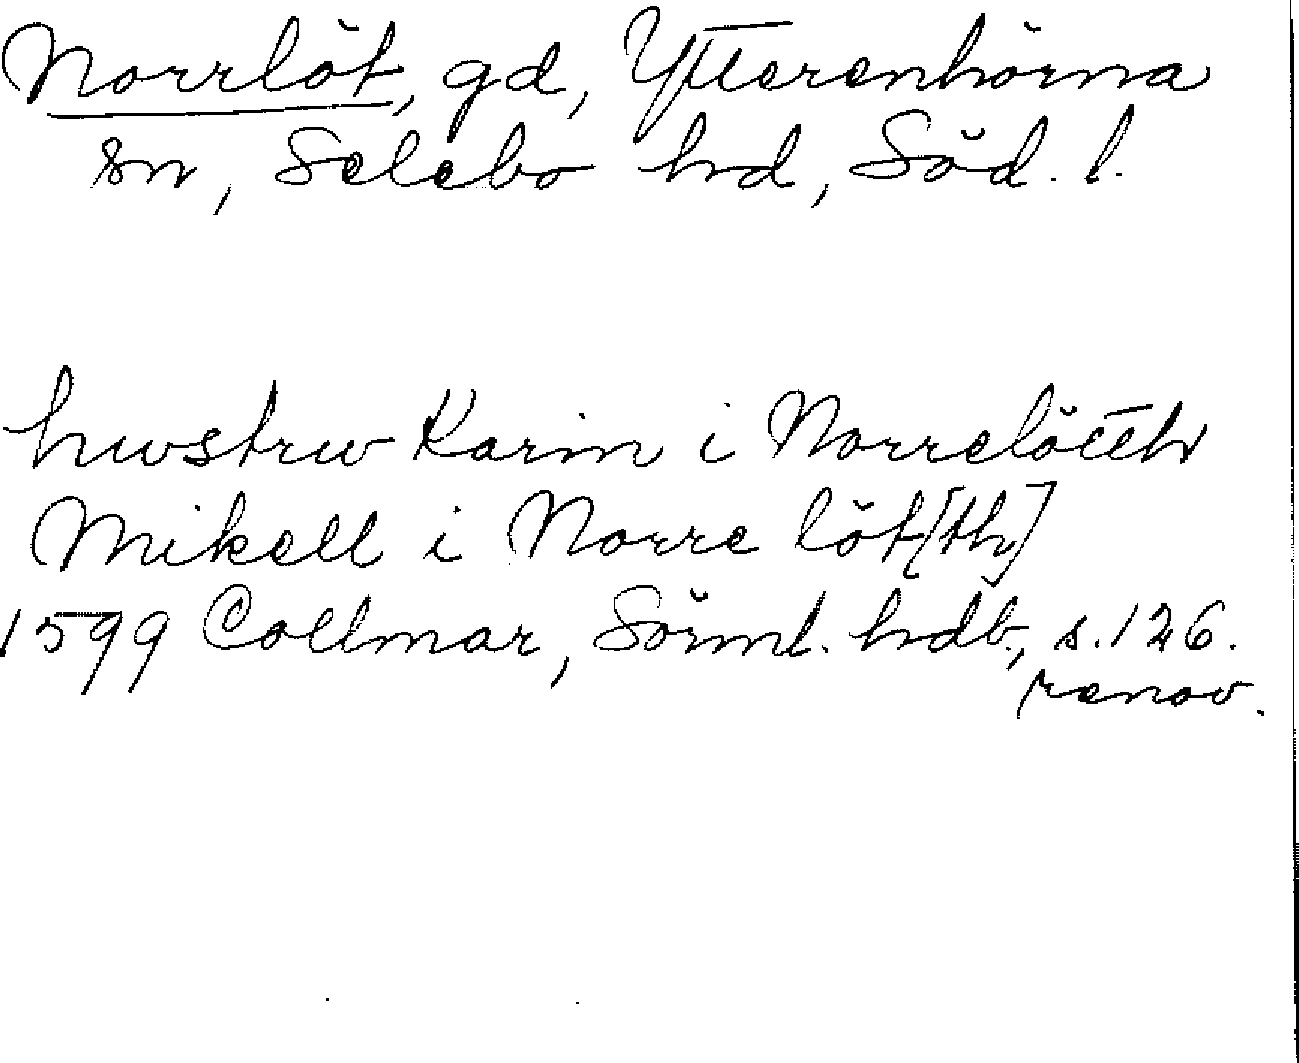 Norrlöt, gd, Ytterenhörna
sn, Selebo hd, Söd. l.
hwstrw Karin i Norrelötth
Mikell i Norre löt[th]
1599 Collmar, Sörml. hdb., s. 126.
renov.